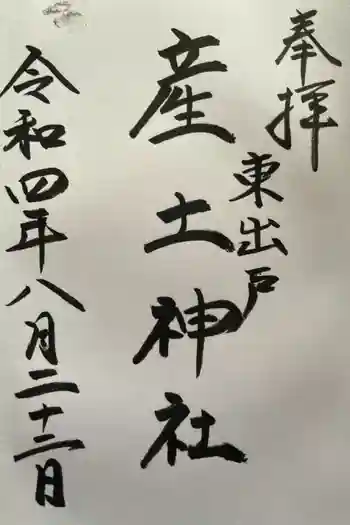 奉拝
東出戸
産土神社
令和四年八月二十三日